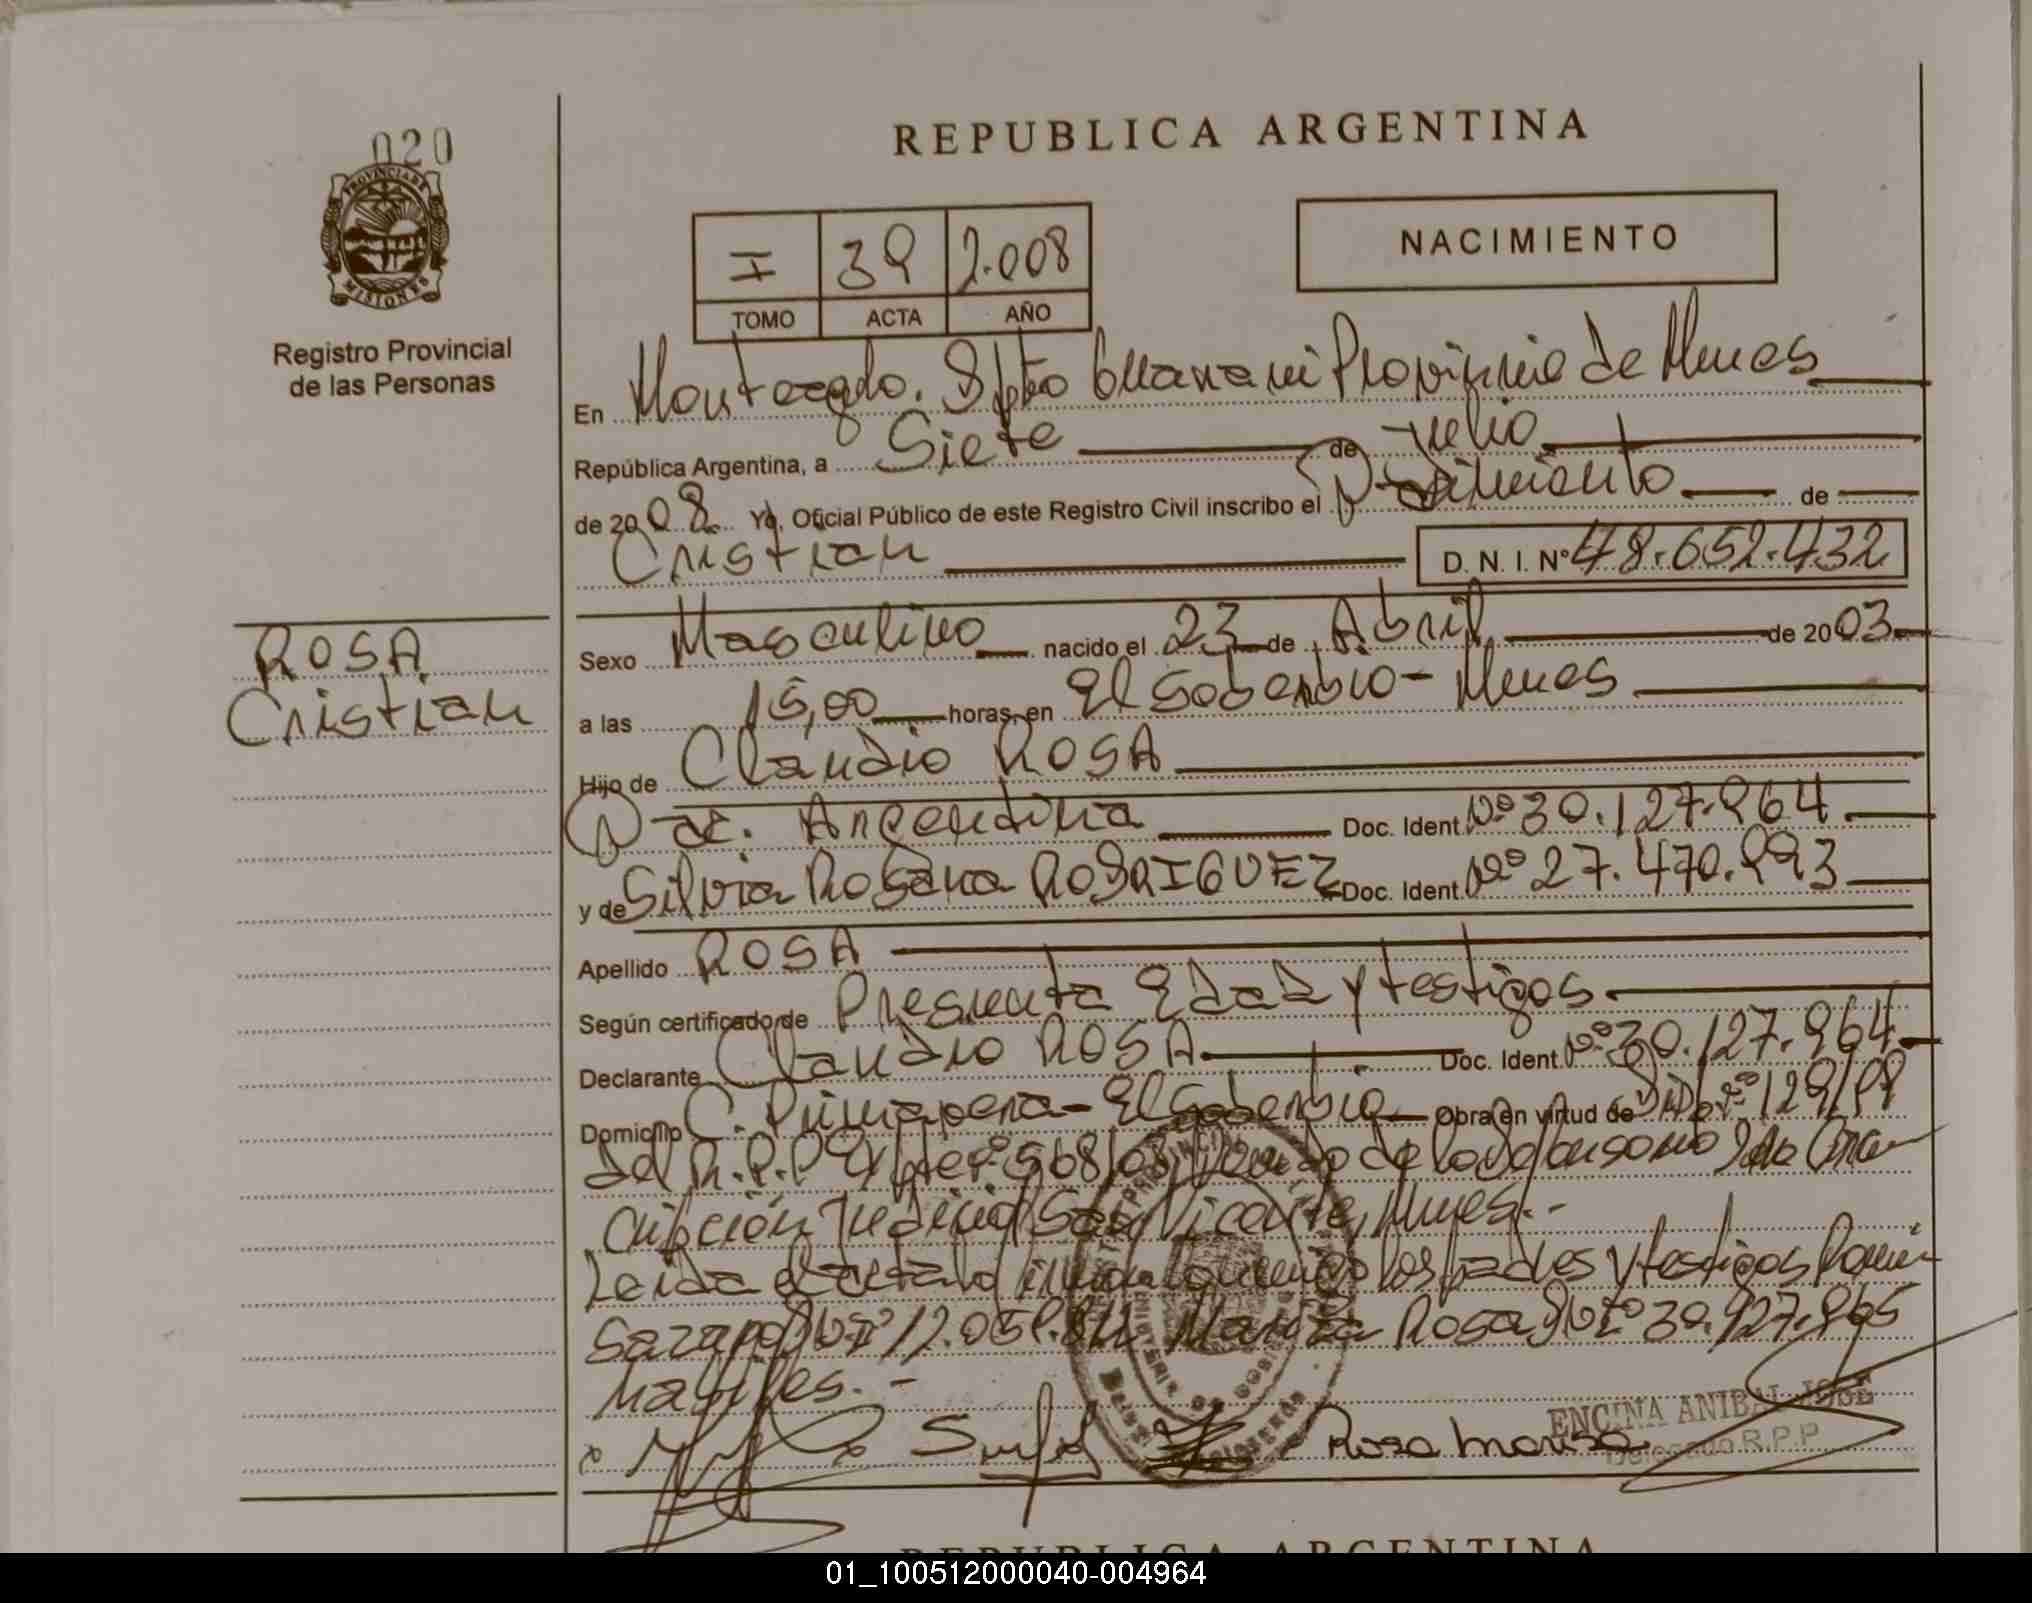 020
REPUBLICA ARGENTINA
PROVINCIA DE
MISIONES
Registro Provincial
de las Personas
I 39 2.008
TOMO ACTA AÑO
NACIMIENTO
En Monteagdo. Dpto Guarani Provincia de Mnes
República Argentina, a Siete de Julio
de 2008 Yo, Oficial Público de este Registro Civil inscribo el Nacimiento de
Cristian D. N. I. Nº 48.652.432
ROSA
Cristian
Sexo Masculino nacido el 23 de Abril de 2003
a las 15,00 horas, en El Soberbio - Mnes
Hijo de Claudio ROSA
Nac. Argentina Doc. Ident. Nº 30.127.964
y de Silvia Rosana RODRIGUEZ Doc. Ident. Nº 27.470.893
Apellido ROSA
Según certificado de Presunta Edad y testigos
Declarante Claudio ROSA Doc. Ident. Nº 30.127.964
Domicilio C. Primavera - El Soberbio Obra en virtud de Nº 129/88
del R.P.P Expte Nº 568/08 de la Defensoria
cripción Judicial San Vicente, Mnes.-
Leida el acta los padres y testigos
Nº 12.058.811 Mariza Rosa Nº 30.927.865
habiles.-
Rosa mariza
ENCINA ANIBAL JOSE
Delegado R.P.P
REPUBLICA ARGENTINA
01_100512000040-004964